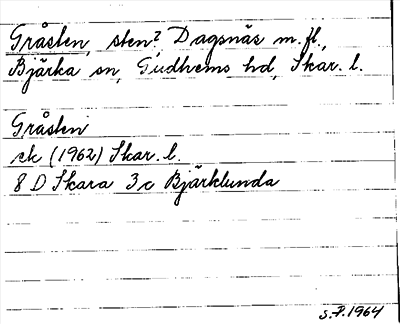 Gråsten, sten?, Dagsnäs m.fl.,
Bjärka sn, Gudhems hd, Skar. l.
Gråsten
ek (1962) Skar. l.
8 D Skara 3c Bjärklunda
S.P. 1964